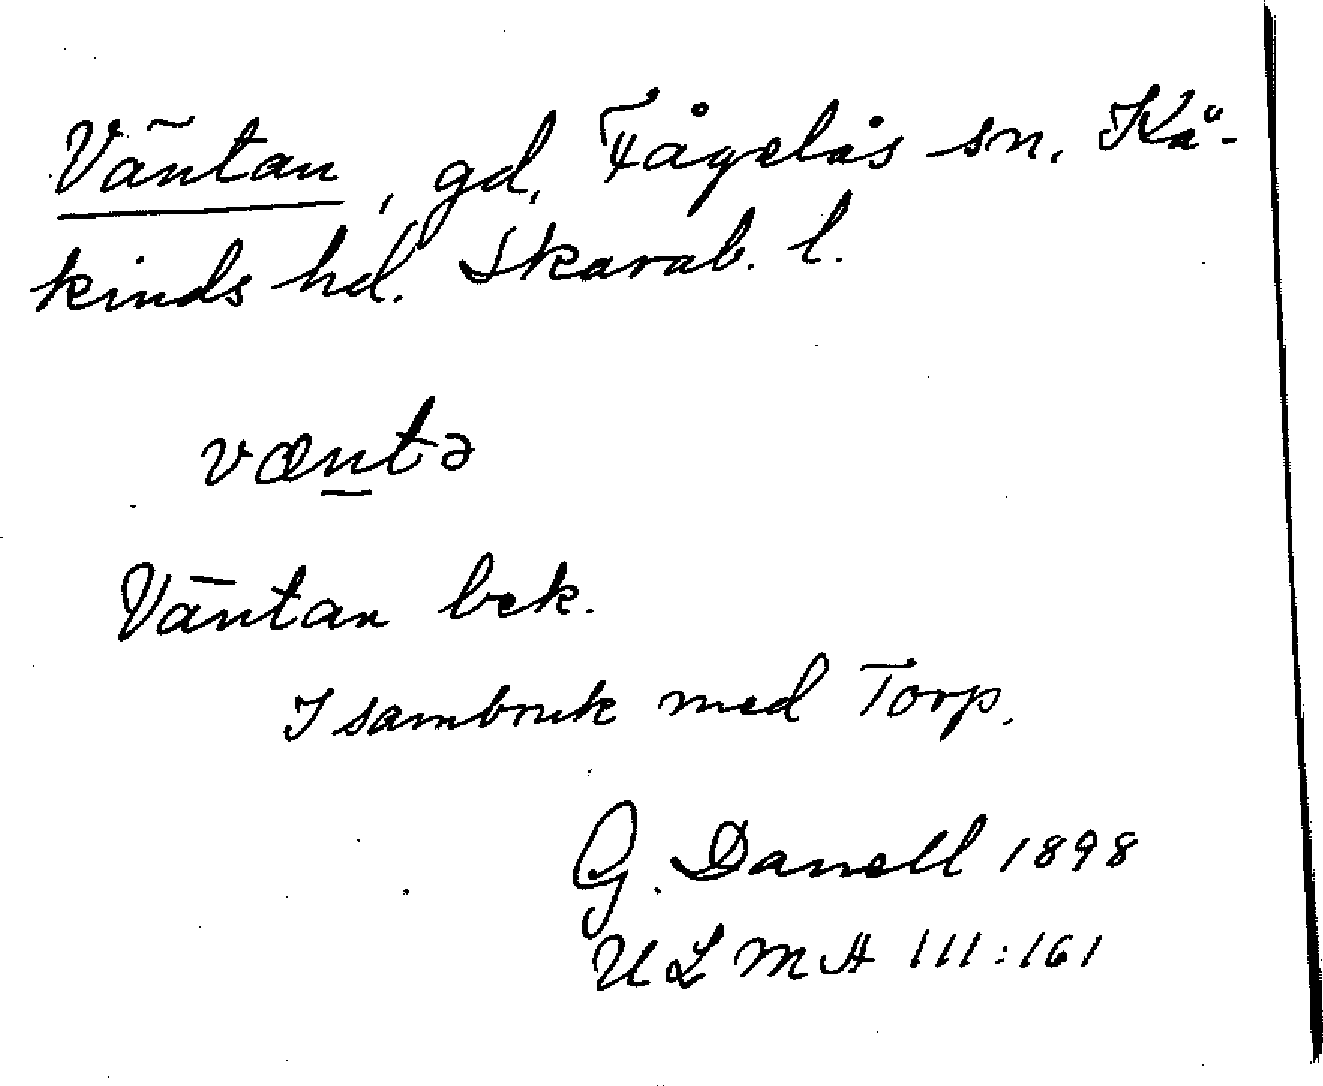 Väntan, gd, Fågelås sn. Kå-
kinds hd. Skarab. l.
væntə
Väntan bek.
I sambruk med Torp.
G. Danell 1898
ULMA 111:161